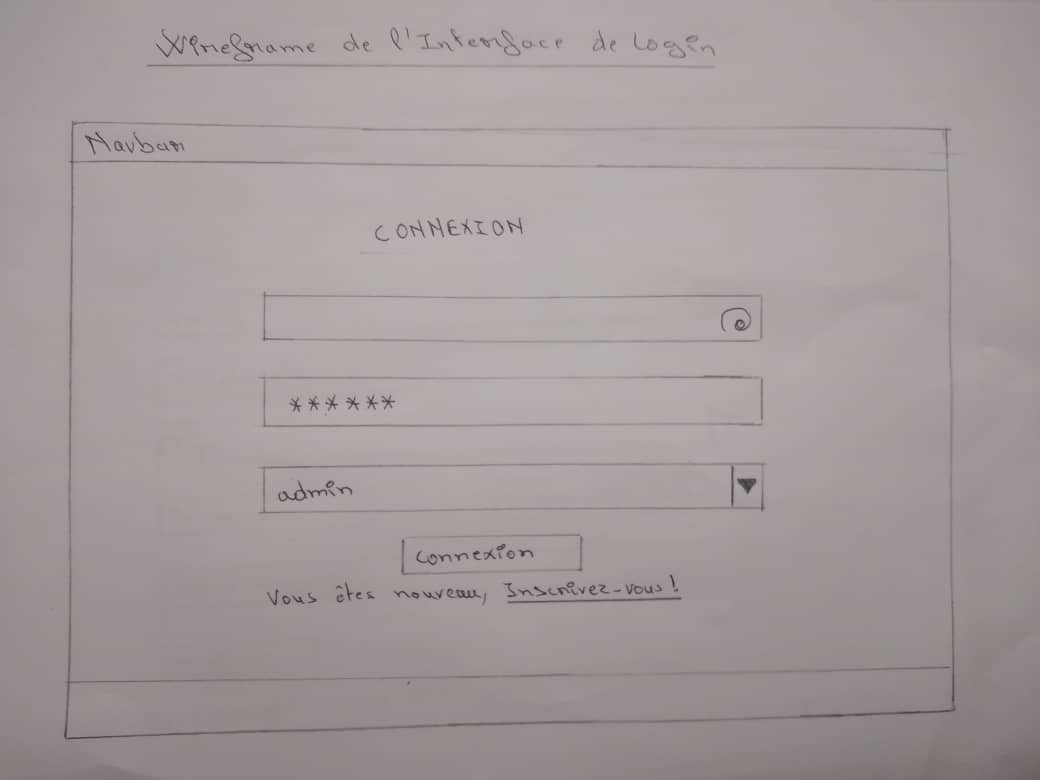 Wireframe de l'Interface de Login
Navbar
CONNEXION
******
admin
connexion
Vous êtes nouveau, Inscrivez-vous!